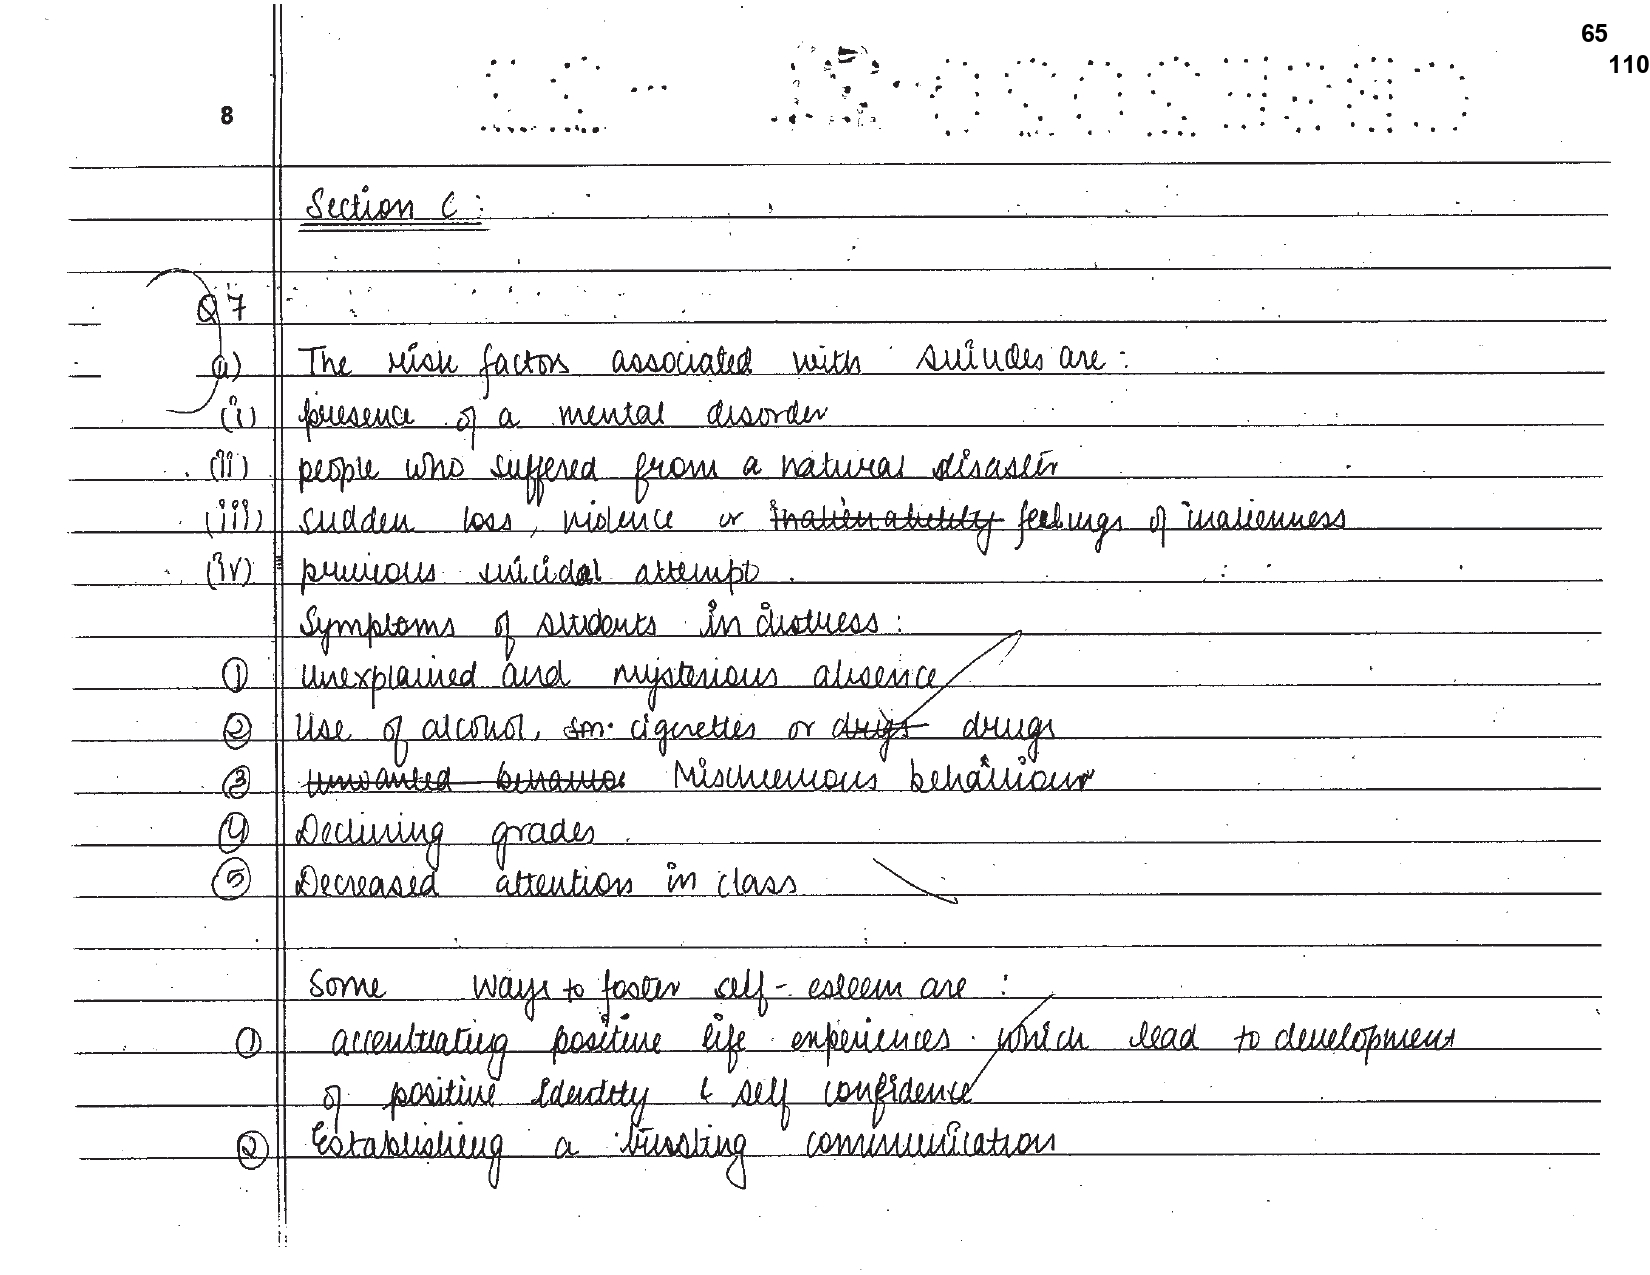 65
110
8
Section C:
Q7
a) The risk factors associated with suicides are:
(i) presence of a mental disorder
(ii) people who suffered from a natural disaster
(iii) sudden loss, violence or feelings of
(iv) previous suicidal attempt.
Symptoms of students in distress:
① Unexplained and mysterious absence
② Use of alcohol, sm. cigerettes or drugs drugs
③ Unwanted behavio Mischiemous behaviour
④ Declining grades.
⑤ Decreased attention in class
Some ways to foster self-esteem are:
① accentuating positive life experiences which lead to development
of positive identity & self confidence
② Establishing a trusting communication